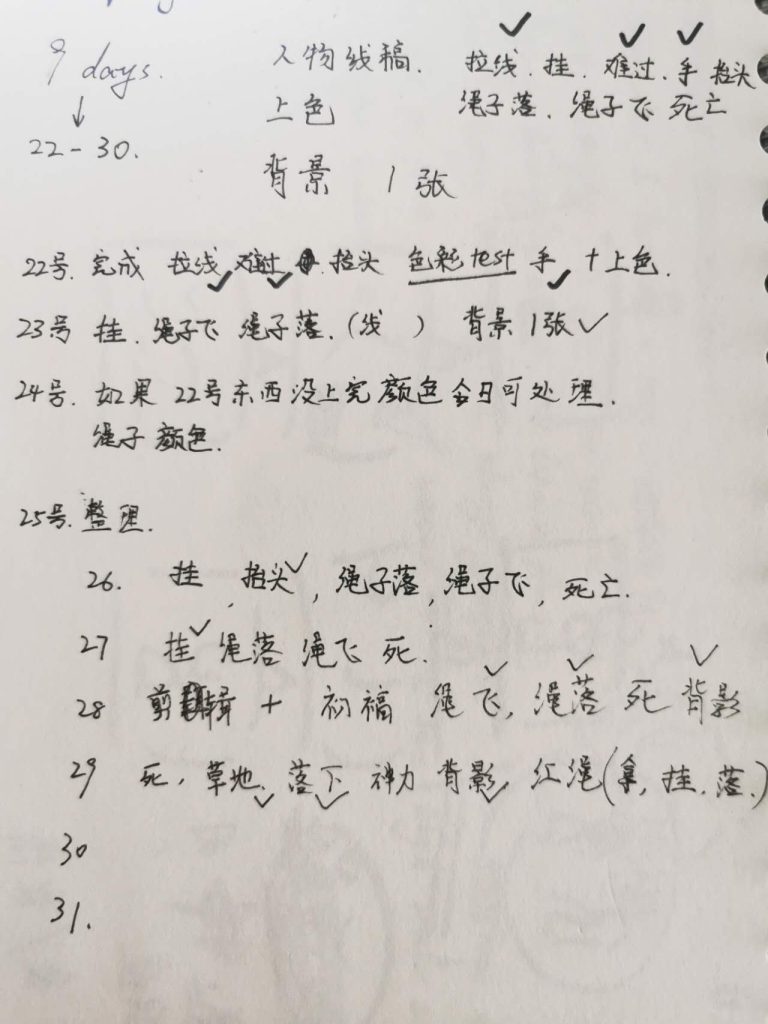 9 days. 人物线稿. 拉线. 挂. 难过. 手 抬头
↓ 上色 绳子落. 绳子飞 死亡
22-30.
背景 1张
22号. 完成 拉线 难过 抬头 色彩test 手 + 上色.
23号 挂. 绳子飞 绳子落. (线 ) 背景 1张
24号. 如果 22号东西没上完颜色今日可处理.
绳子颜色.
25号. 整理.
26. 挂, 抬头, 绳子落, 绳子飞, 死亡.
27 挂 绳落 绳飞 死.
28 剪辑 + 祠福 绳飞, 绳落 死 背影
29 死, 草地. 落下 神力 背影, 红绳(拿, 挂. 落.)
30
31.